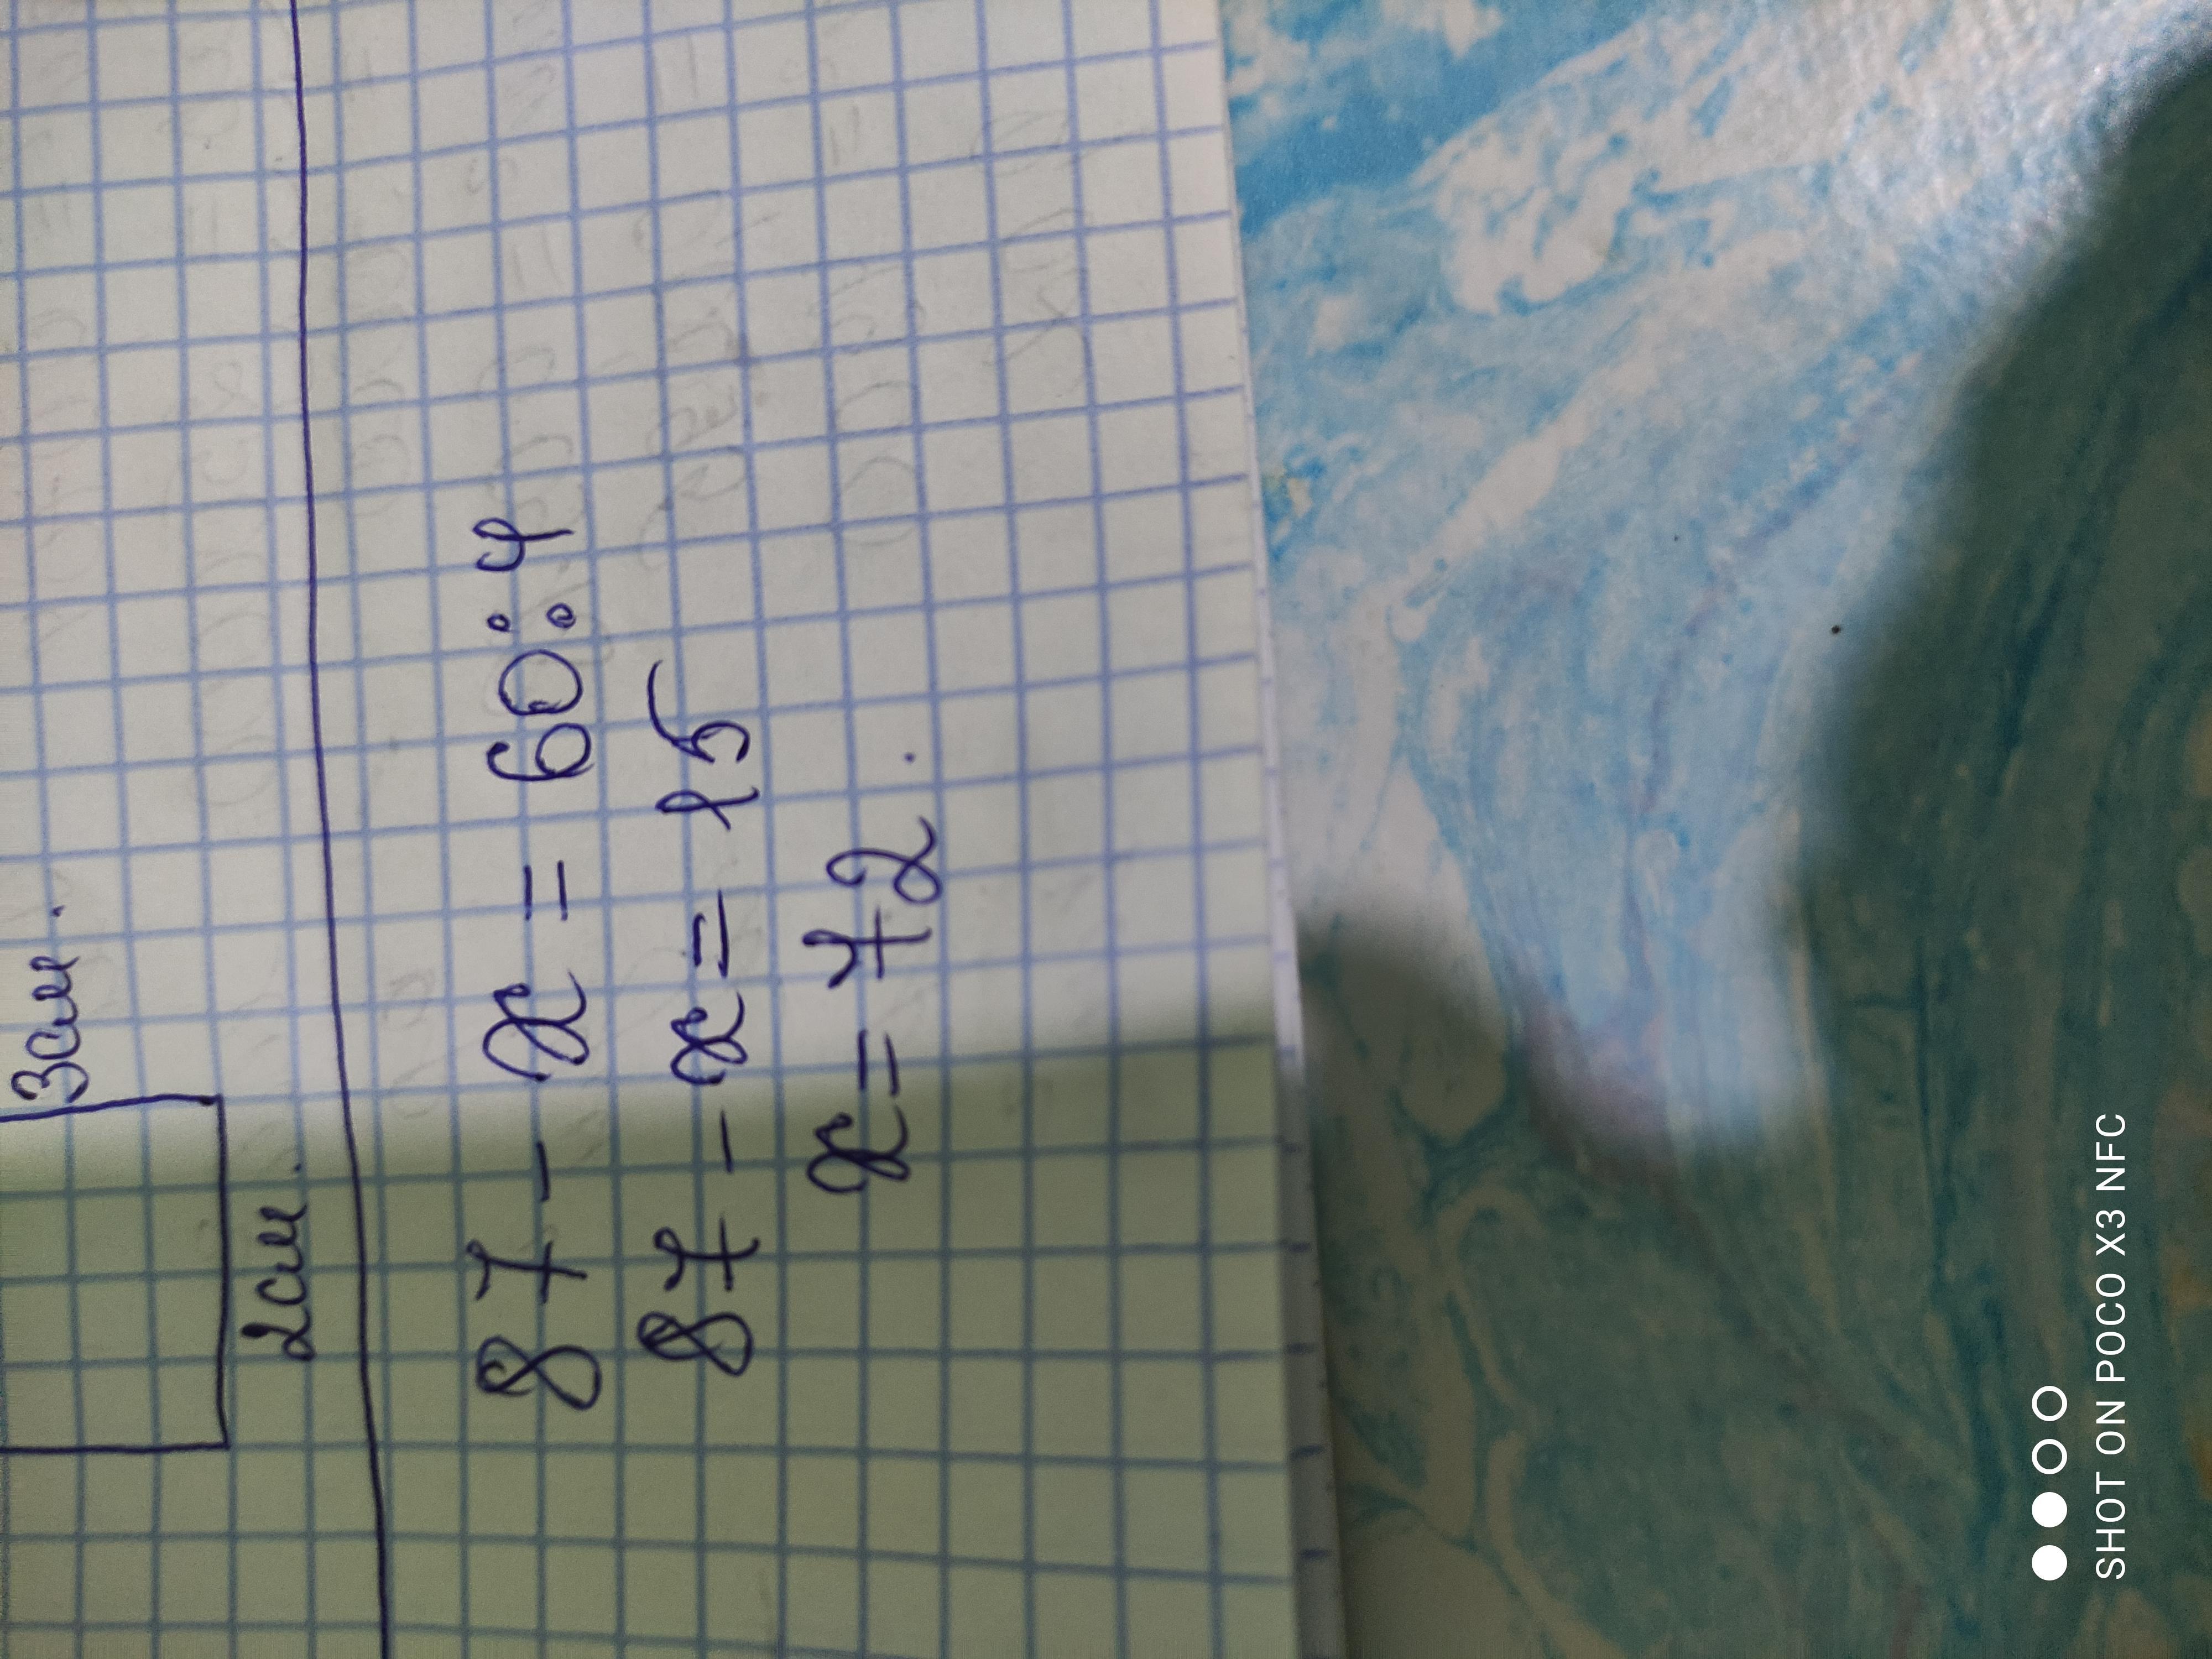 3см.
2см.
87 - x = 60:4
87 - x = 15
x = 72.
SHOT ON POCO X3 NFC